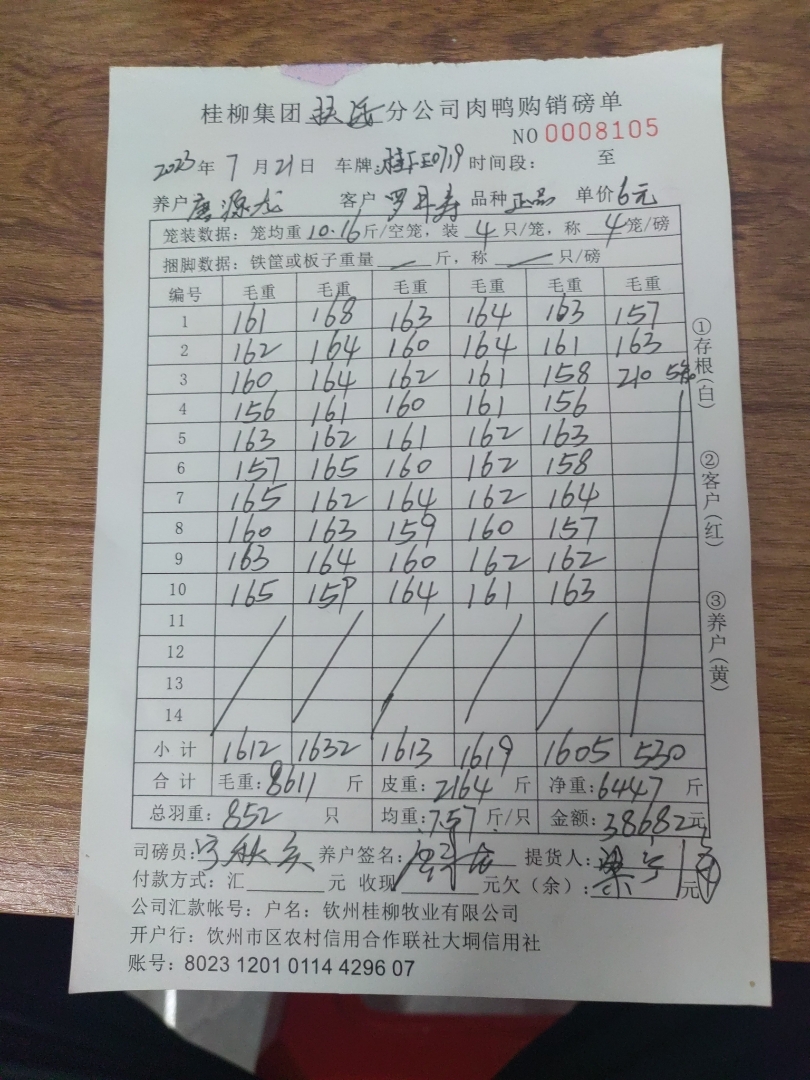 桂柳集团 分公司肉鸭购销磅单
NO 0008105
2023年 7 月 21 日 车牌: 0719 时间段: 至
养户 唐源龙 客户 罗 寿 品种 正品 单价 6元
笼装数据: 笼均重 10.16 斤/空笼, 装 4 只/笼, 称 4 笼/磅
捆脚数据: 铁筐或板子重量 — 斤, 称 — 只/磅
编号 毛重 毛重 毛重 毛重 毛重 毛重
1 161 168 163 164 163 157
2 162 164 160 164 161 163
3 160 164 162 161 158 210 5
4 156 161 160 161 156
5 163 162 161 162 163
6 157 165 160 162 158
7 165 162 164 162 164
8 160 163 159 160 157
9 163 164 160 162 162
10 165 159 164 161 163
11
12
13
14
小计 1612 1632 1613 1619 1605 530
合计 毛重: 8611 斤 皮重: 2164 斤 净重: 6447 斤
总羽重: 852 只 均重: 7.57 斤/只 金额: 38682元
司磅员: 养户签名: 提货人:
付款方式: 汇 元 收现 元欠(余): 元
公司汇款帐号: 户名: 钦州桂柳牧业有限公司
开户行: 钦州市区农村信用合作联社大垌信用社
账号: 8023 1201 0114 4296 07
①存根(白)
②客户(红)
③养户(黄)